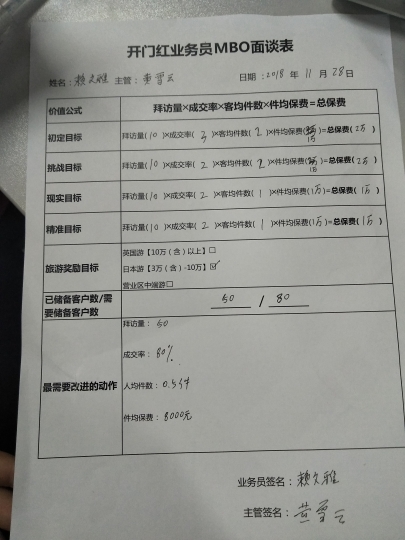 开门红业务员MBO面谈表
姓名：赖久雅 主管：黄雪云 日期：2018 年 11 月 28日
价值公式 拜访量×成交率×客均件数×件均保费=总保费
初定目标 拜访量(10)×成交率(3)×客均件数(2)×件均保费(1万)=总保费(2万)
挑战目标 拜访量(10)×成交率(2)×客均件数(2)×件均保费(1万)=总保费(2万)
现实目标 拜访量(10)×成交率(2)×客均件数(1)×件均保费(1万)=总保费(1万)
精准目标 拜访量(10)×成交率(2)×客均件数(1)×件均保费(1万)=总保费(1万)
旅游奖励目标
英国游【10万（含）以上】□
日本游【3万（含）-10万】☑
营业区中端游□
已储备客户数/需要储备客户数 50 / 80
最需要改进的动作
拜访量：50
成交率：80%
人均件数：0.5件
件均保费：8000元
业务员签名：赖久雅
主管签名：黄雪云